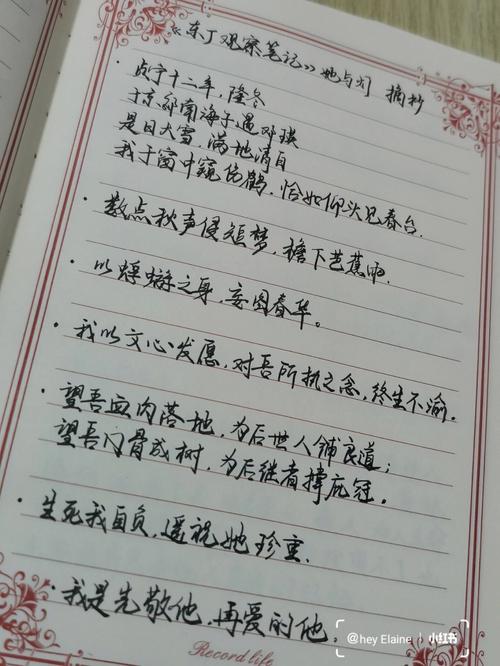 《东厂观察笔记》她与灯 摘抄
· 贞宁十二年，隆冬
于京郊南海子遇邓瑛
是日大雪，满地清白
我于窗中窥伤鹤，恰如仰头见春台.
· 数点秋声侵短梦，檐下芭蕉雨.
· 以蜉蝣之身，妄图春华。
· 我以文心发愿，对吾所执之念，终生不渝.
· 望吾血肉落地，为后世人铺良道；
望吾门骨成树，为后继者撑庇冠。
· 生死我自负，遥祝她珍重.
· 我是先敬他，再爱的他.
Record life
@hey Elaine 小红书